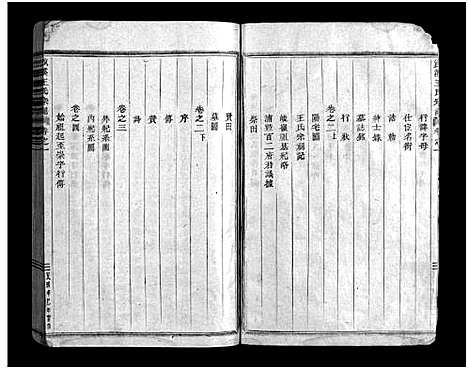 行諱字母
仕宦名術
誥勅
紳士錄
墓誌錄
行狀
卷之二上
陽宅圖
王氏宗祠記
崚嶺里祀略
浦暨百二府君議據
祭田
賢田
墓圖
卷之二下
序
傳
贊
詩
卷之三
外紀系圖
內紀系圖
卷之四
始祖起至崇字行傳